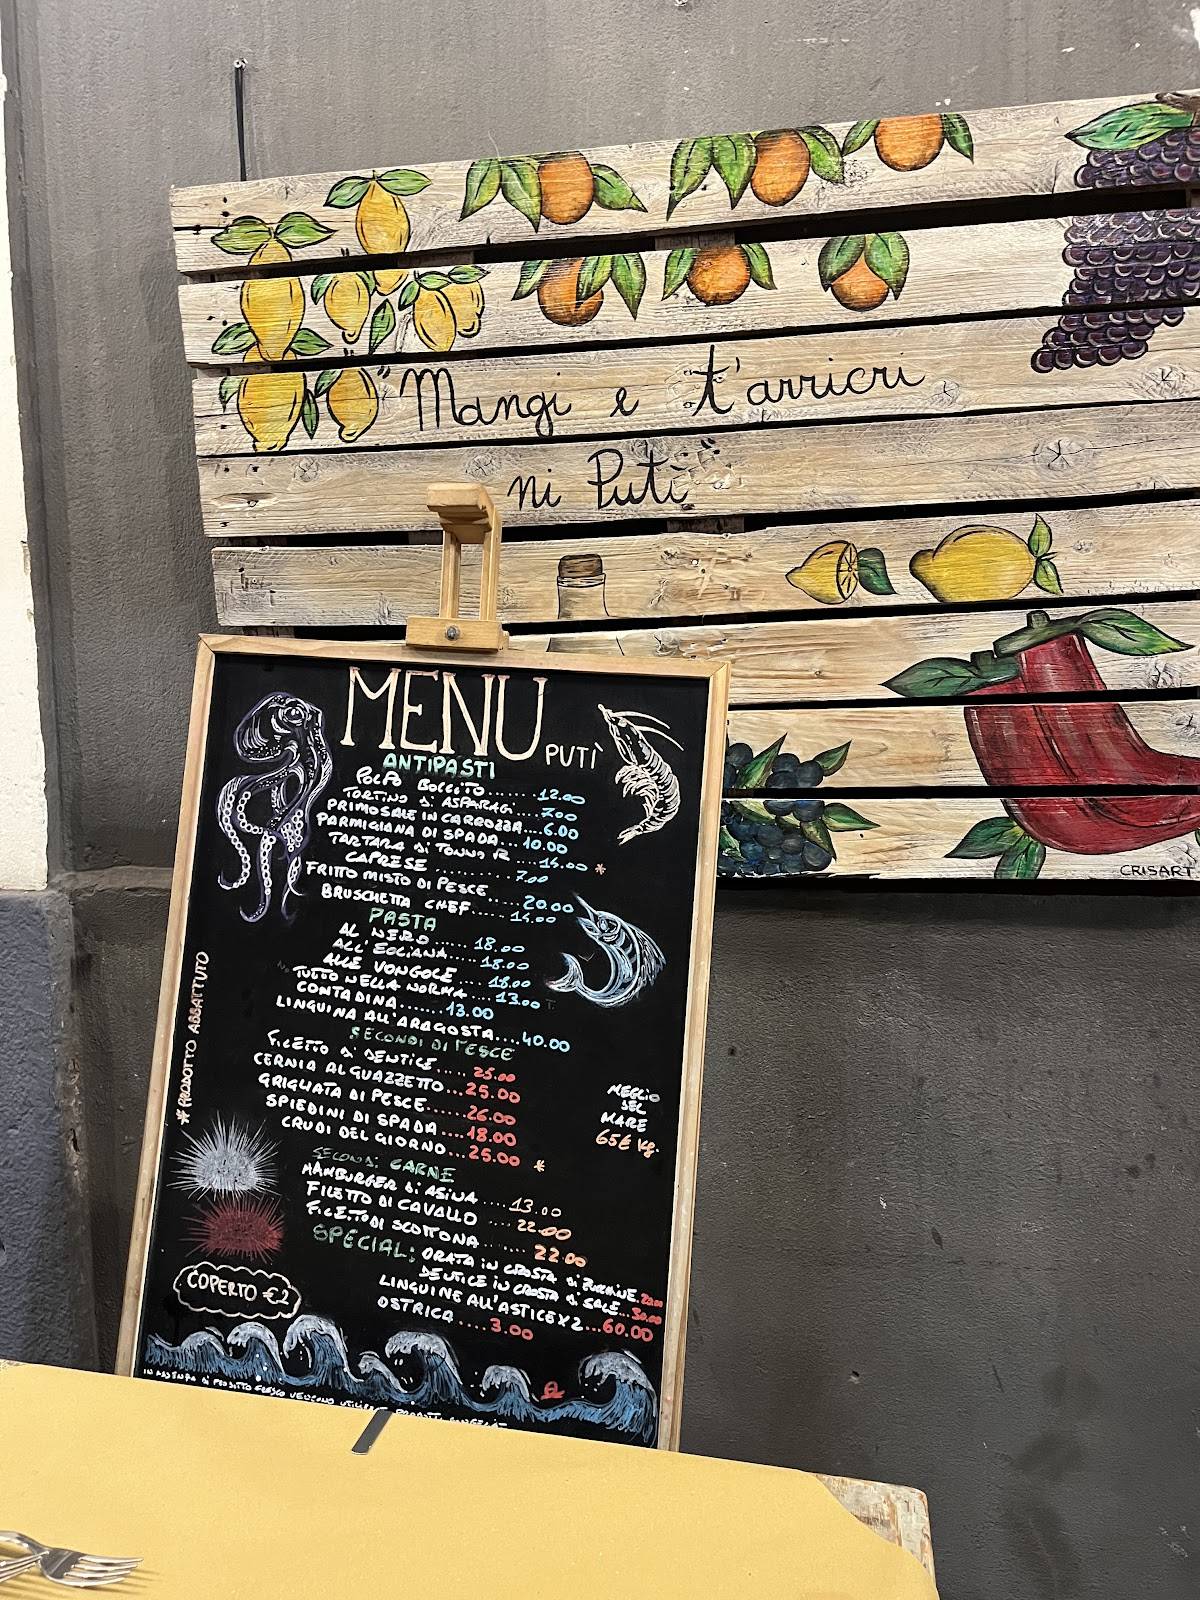 "Mangi e t'arricri
ni Putì"
CRISART
MENU PUTÌ
ANTIPASTI
POLPO BOLLITO.......12.00
TORTINO di ASPARAGI.....7.00
PRIMOSALE IN CARROZZA...6.00
PARMIGIANA DI SPADA...10.00
TARTARA di TONNO R....14.00 *
CAPRESE ..........7.00
FRITTO MISTO DI PESCE.....20.00
BRUSCHETTA CHEF......14.00
PASTA
AL NERO......18.00
ALL'EOLIANA.....18.00
ALLE VONGOLE....18.00
TUTTO NELLA NORMA...13.00
CONTADINA.......13.00
LINGUINA ALL'ARAGOSTA....40.00
SECONDI DI PESCE
FILETTO di DENTICE.....25.00
CERNIA AL GUAZZETTO...25.00
GRIGLIATA DI PESCE......26.00
SPIEDINI DI SPADA....18.00
CRUDI DEL GIORNO....25.00 *
MEGLIO
DEL
MARE
65€ Kg.
SECONDI CARNE
HAMBURGER di ASINA....13.00
FILETTO DI CAVALLO....22.00
FILETTO DI SCOTTONA.......22.00
SPECIAL: ORATA IN CROSTA di
DENTICE IN CROSTA di SALE...30.00
LINGUINE ALL'ASTICE X2...60.00
OSTRICA....3.00
* PRODOTTO ABBATTUTO
COPERTO €2
IN ASSENZA di PRODOTTO FRESCO VENGONO